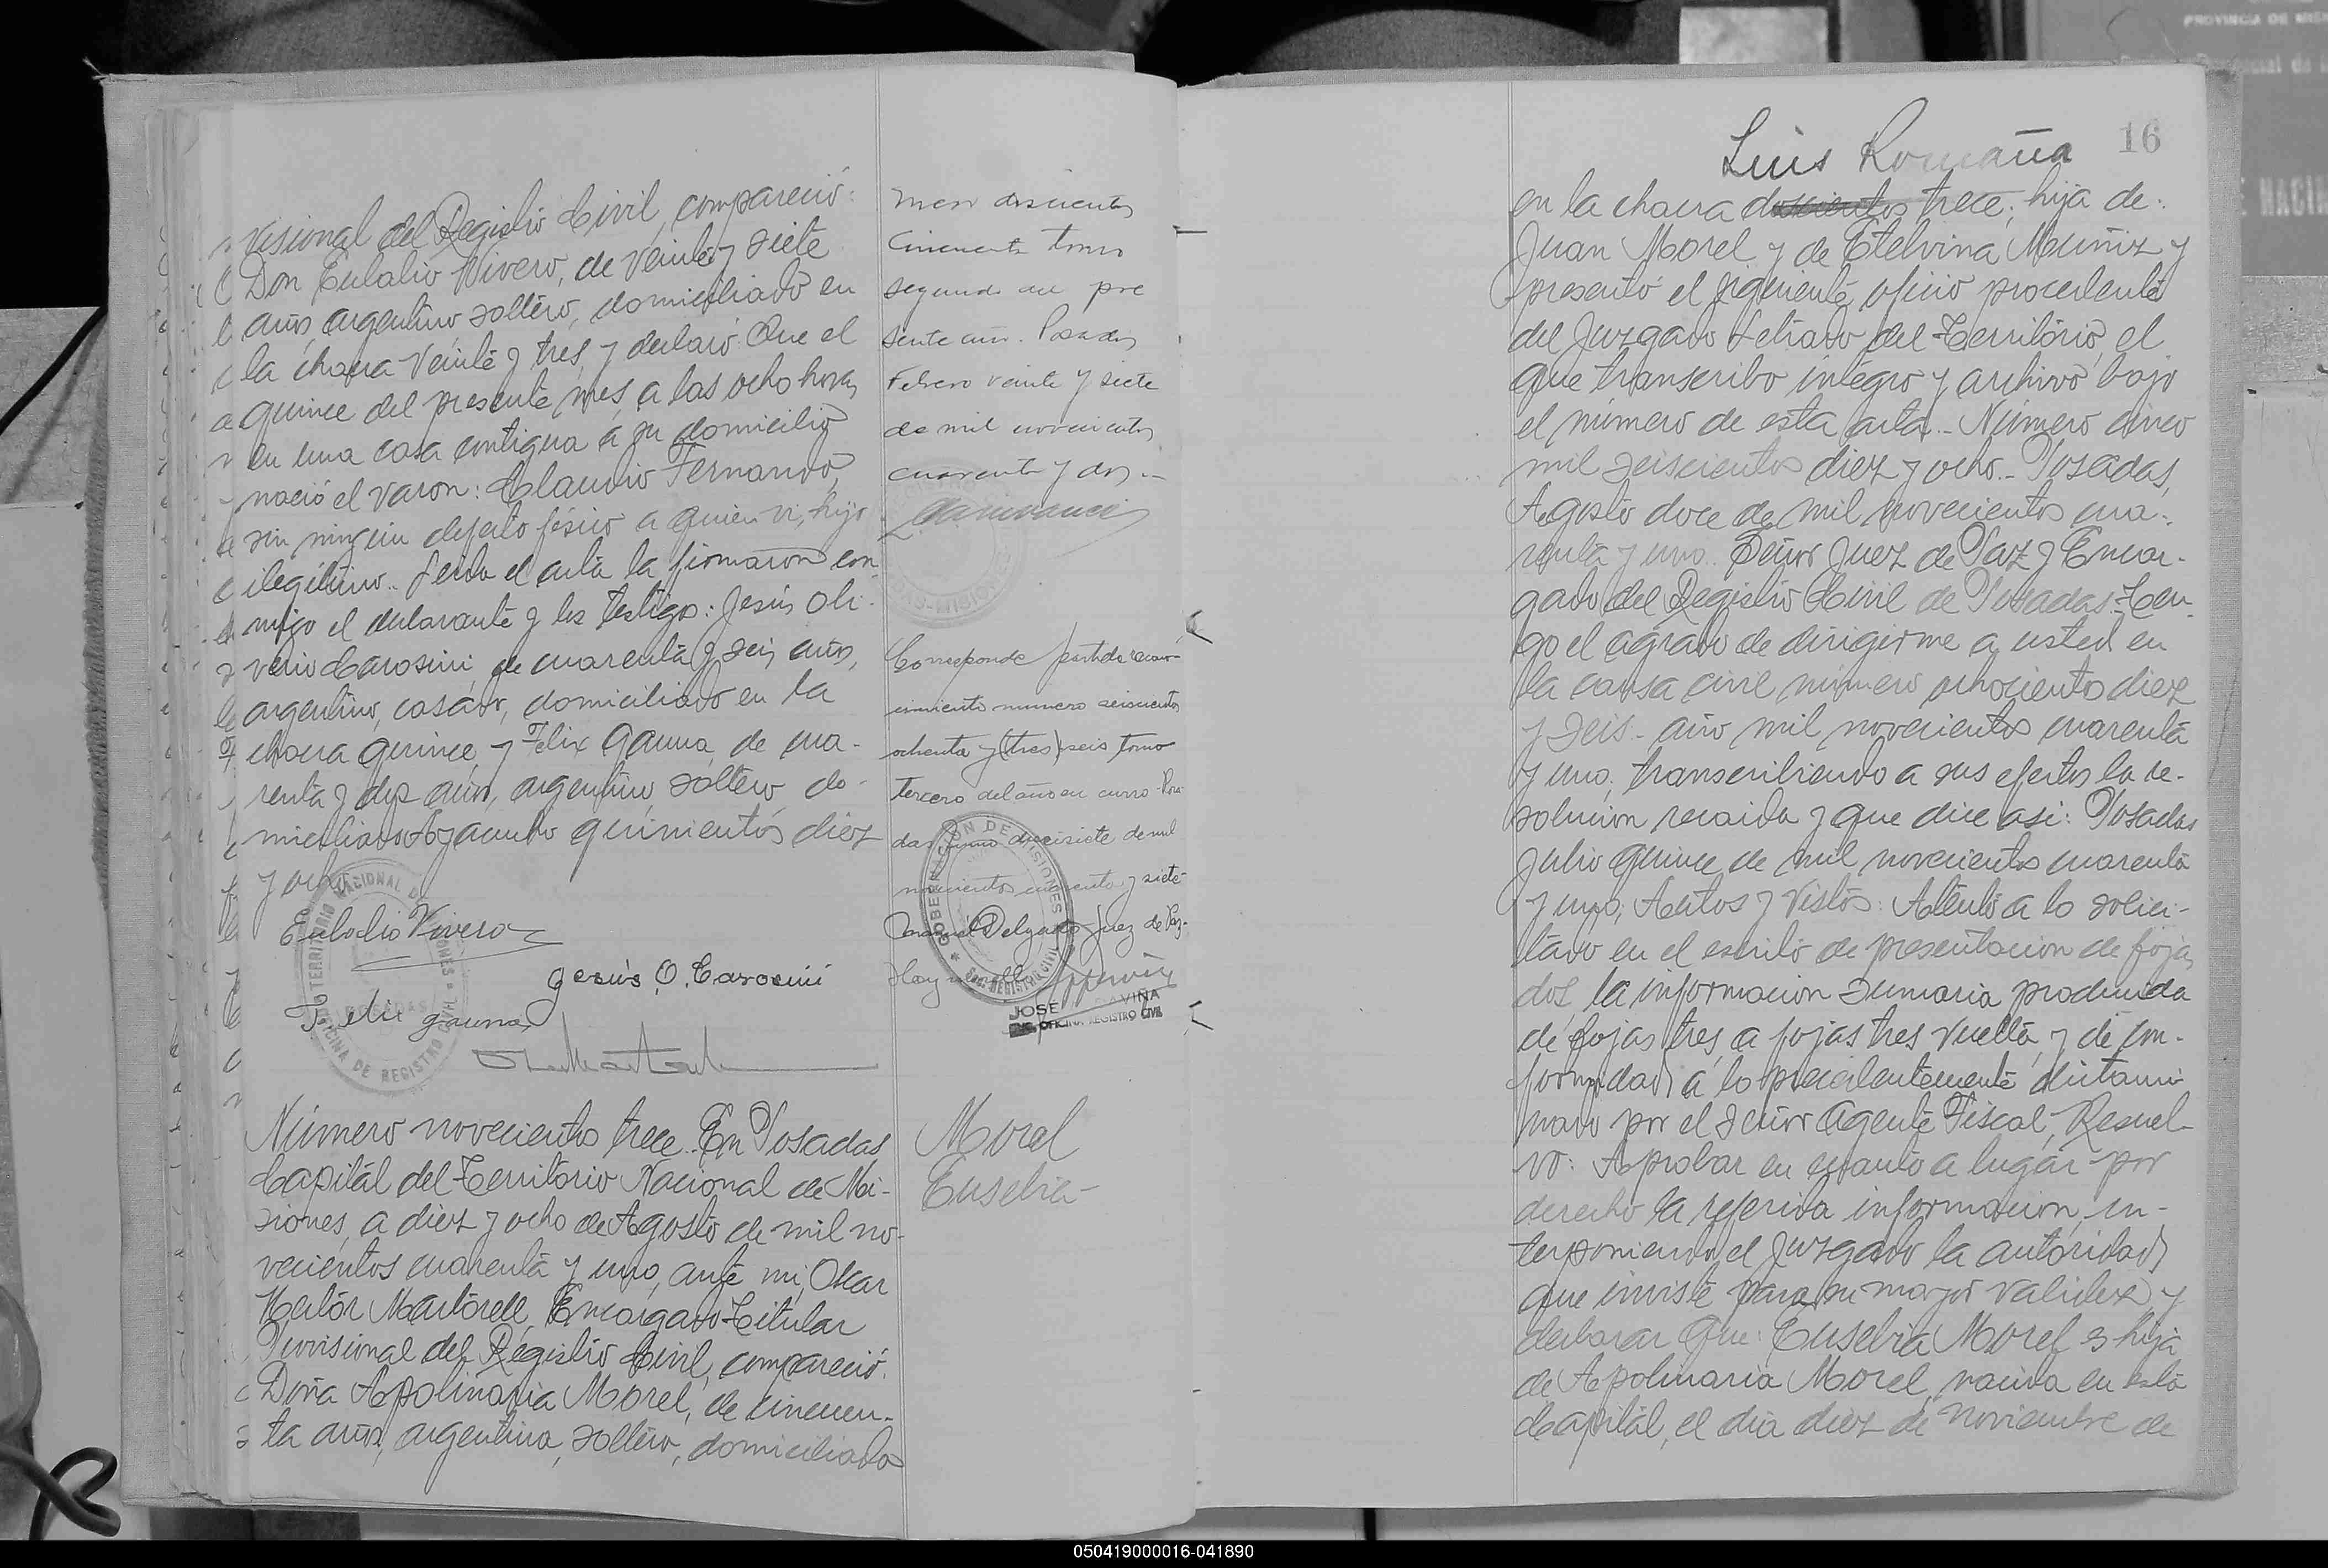 visional del Registro Civil, compareció:
Don Eulalio Vivero, de veinte y siete
años, argentino soltero, domiciliado en
la chacra veinte y tres, y declaró: Que el
quince del presente mes, a las ocho horas
en una casa contigua á su domicilio
nació el varon: Claudio Fernando,
sin ningún defecto físico a quien vi, hijo
ilegítimo. Leida el acta la firmaron con-
migo el declarante y los testigos: Jesús Oli-
verio Carosini, de cuarenta y seis años,
argentino, casado, domiciliado en la
chacra quince, y Felix Gauna, de cua-
renta y dos años, argentino soltero, do-
miciliado Ayacucho quinientos diez
y ocho
Eulalio Vivero
Jesús O. Carosini
Felix gauna
TERRITORIO NACIONAL DE MISIONES
POSADAS
OFICINA DE REGISTRO CIVIL
Número novecientos trece. En Posadas
Capitál del Territorio Nacional de Mi-
siones, a diez y ocho de Agosto de mil no-
vecientos cuarenta y uno, ante mi, Oscar
Hector Martorell, Encargado Titular
Provisional del Registro Civil, compareció:
Doña Apolinaria Morel, de cincuen-
ta años, argentina, soltera, domiciliada
doscientos
Cincuenta tomo
segundo del pre
sente año. Posadas
Febrero veinte y siete
de mil novecientos
cuarenta y dos.-
Corresponde partida recono-
cimiento numero seiscientos
ochenta y (tres) seis tomo
tercero del año en curso. Posa
das Junio diecisiete de mil
novecientos cuarenta y siete
Manuel Delgado Juez de Paz-
GOBERNACION DE MISIONES
SEC. REGISTRO CIVIL
JOSE
ENC. OFICINA REGISTRO CIVIL
Morel
Eusebia-
16
Luis Romaña
en la chacra doscientos trece; hija de:
Juan Morel y de Etelvina Muñiz y
presentó el siguiente oficio procedente
del Juzgado Letrado del Territorio, el
que transcribo íntegro y archivo bajo
el número de esta acta.- Número cinco
mil seiscientos diez y ocho.- Posadas,
Agosto doce de mil novecientos cua-
renta y uno. Señor Juez de Paz y Encar-
gado del Registro Civil de Posadas. Ten-
go el agrado de dirigirme a usted en
la causa civil número ochociento diez
y seis- año mil novecientos cuarenta
y uno, transcribiendo a sus efectos la re-
solucion recaida y que dice asi: Posadas
Julio quince de mil novecientos cuarenta
y uno; Autos y Vistos: Atento a lo solici-
tado en el escrito de presentacion de fojas
dos, la informacion sumaria producida
de fojas tres a fojas tres vuelta, y de con-
formidad á lo precedentemente dictami
nado por el señor Agente Fiscal, Resuel-
vo: Aprobar en cuanto a lugár por
derecho la referida informacion, in-
terponiendo el Juzgado la autoridad
que inviste para su mayor validez, y
declarar que: Eusebia Morel es hija
de Apolinaria Morel, nacida en esta
Capitál, el día diez de noviembre de
050419000016-041890